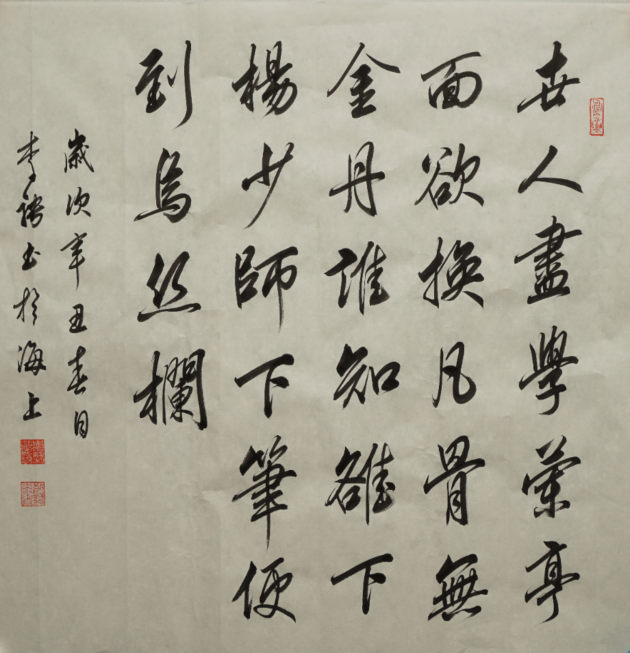 世人盡學蘭亭
面欲換凡骨無
金丹誰知雒下
楊少師下筆便
到烏絲欄
歲次辛丑春日
李書於海上